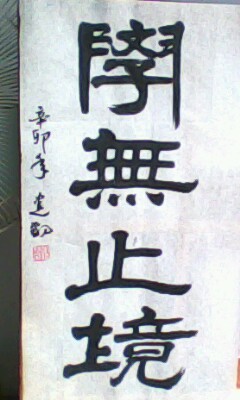 學無止境
辛卯年